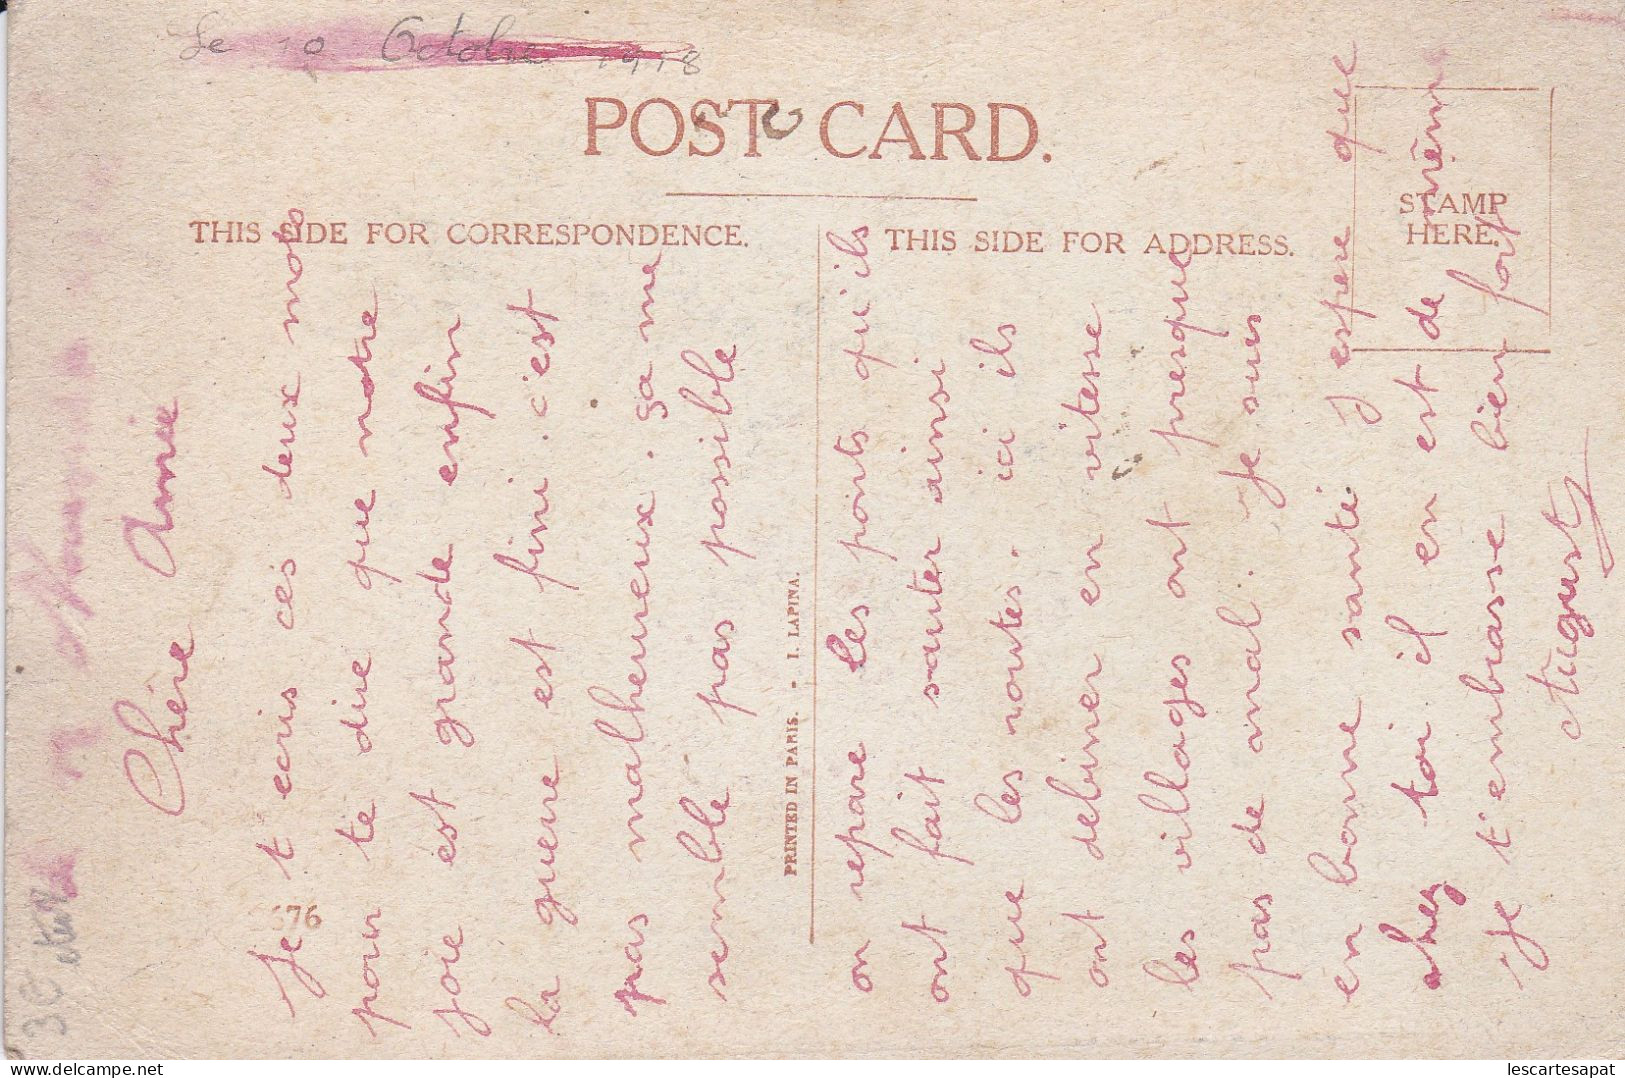 Le 10 Octobre 1918
POST CARD.
THIS SIDE FOR CORRESPONDENCE.
THIS SIDE FOR ADDRESS.
STAMP
HERE.
Chère Amie
Je t ecris ces deux mots
pour te dire que notre
joie est grande enfin
la guerre est fini. c'est
pas malheureux. ça me
semble pas possible
on repare les ponts qu'ils
ont fait sauter ainsi
que les routes. ici ils
ont debiner en vitesse
les villages ont presque
pas de mal. Je suis
en bonne santé. J espere que
chez toi il en est de même
Je t'embrasse bien fort
August
676
PRINTED IN PARIS. - I. LAPINA.
3€
lescartesapat